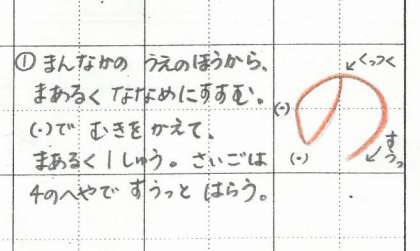 ① まんなかの うえのほうから、
まあるく ななめにすすむ。
(・)で むきを かえて、
まあるく1しゅう。さいごは
4のへやで すうっと はらう。
くっつく
の
(・)
(・)
すうっ